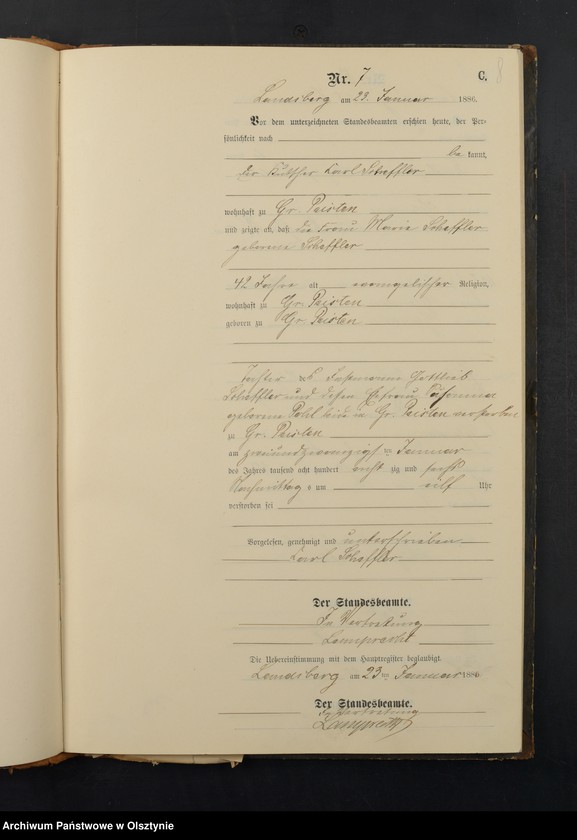 Nr. 7
C.
8
Landsberg am 23. Januar 1886.
Vor dem unterzeichneten Standesbeamten erschien heute, der Per-
sönlichkeit nach
be kannt,
der Kutscher Karl Scheffler
wohnhaft zu Gr. Peisten
und zeigte an, daß die Frau Marie Scheffler
geborene Scheffler
42 Jahre alt evangelischer Religion,
wohnhaft zu Gr. Peisten
geboren zu Gr. Peisten
Tochter des Gottlieb
Scheffler und dessen Ehefrau
geborene Pohl beide in Gr. Peisten verstorben
zu Gr. Peisten
am zweiundzwanzigsten Januar
des Jahres tausend acht hundert acht zig und sechs
Nachmittag s um elf Uhr
verstorben sei
Vorgelesen, genehmigt und unterschrieben
Karl Scheffler
Der Standesbeamte.
In Vertretung
Lamprecht
Die Uebereinstimmung mit dem Hauptregister beglaubigt.
Landsberg am 23ten Januar 1886
Der Standesbeamte.
In Vertretung
Lamprecht
Archiwum Państwowe w Olsztynie